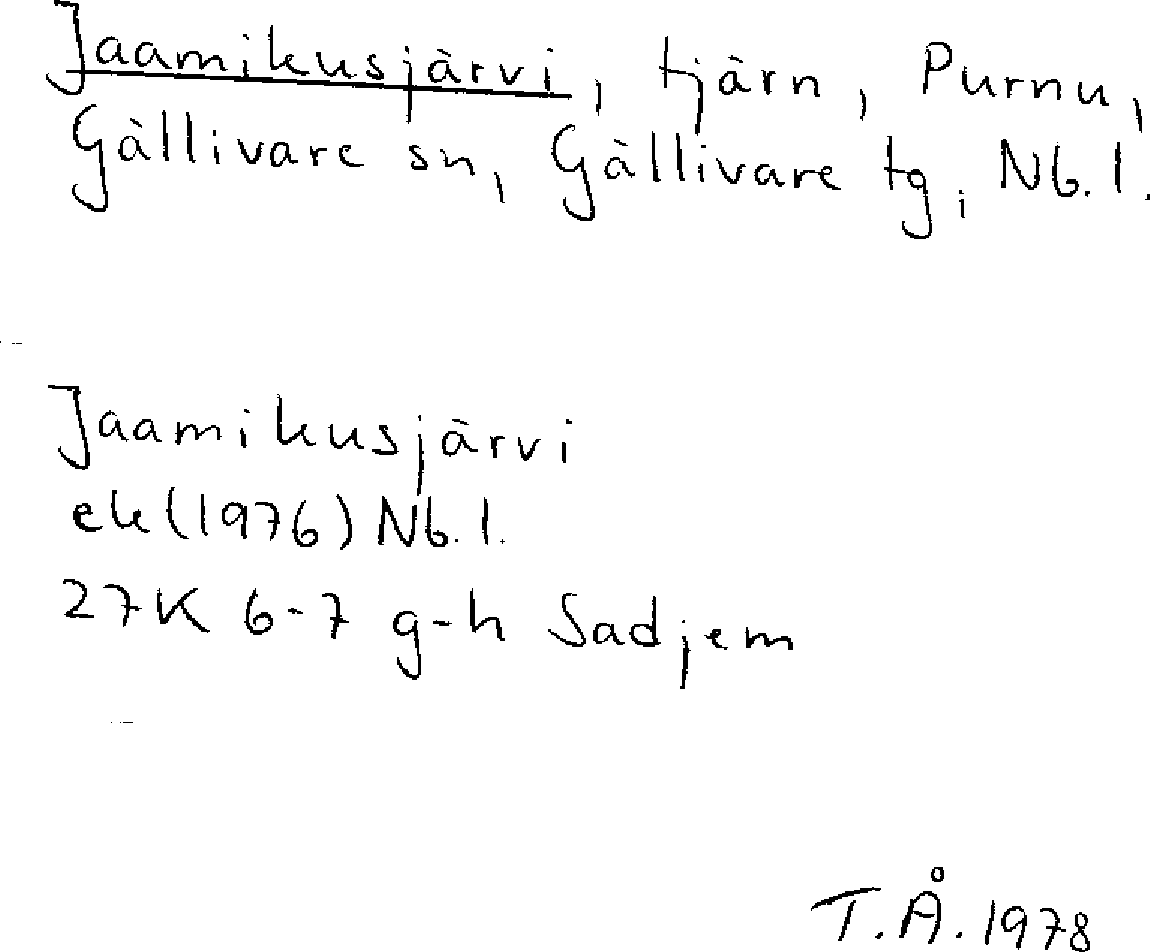 Jaamikusjärvi, tjärn, Purnu,
Gällivare sn, Gällivare tg, Nb. l.
Jaamikusjärvi
ek (1976) Nb. l.
27K 6-7 g-h Sadjem
T.Å. 1978